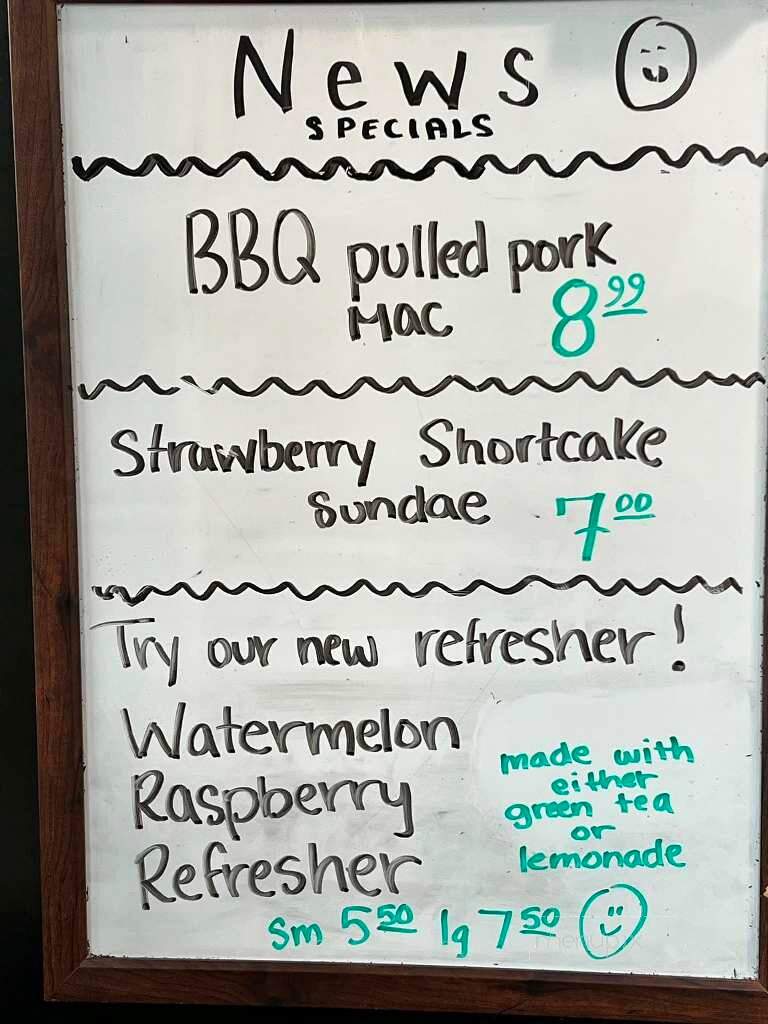 News
SPECIALS
BBQ pulled pork
Mac 8.99
Strawberry Shortcake
Sundae 7.00
Try our new refresher!
Watermelon
Raspberry
Refresher
made with
either
green tea
or
lemonade
Sm 5.50 lg 7.50